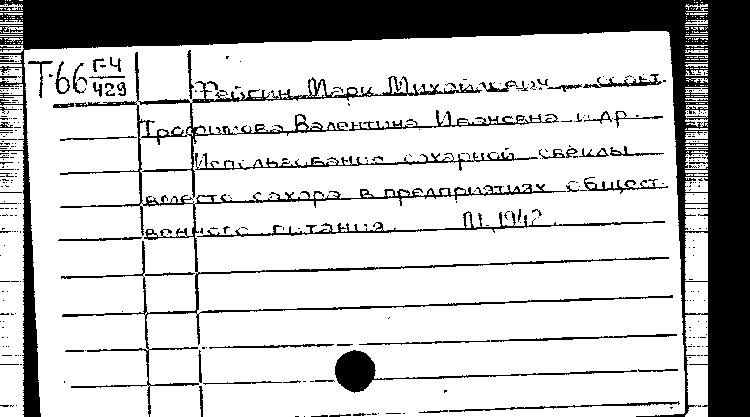 Т-66 Г-4
429
Фейгин, Марк Михайлович, соавт.
Трофимова, Валентина Ивановна и др.
Использование сахарной свеклы
вместо сахара в предприятиях общест-
венного питания. М., 1942.